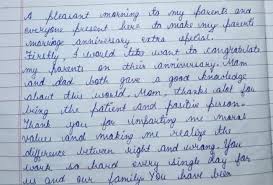 A pleasant morning to my parents and
everyone present here to make my parents
marriage anniversary extra special.
Firstly, I would like want to congratulate
my parents on their anniversary. Mom
and dad both gave a good knowledge
about this world. Mom, thanks alot for
being the patient and positive person.
Thank you for imparting me moral
values and making me realize the
difference between right and wrong. You
work so hard every single day for
us and our family. You have been